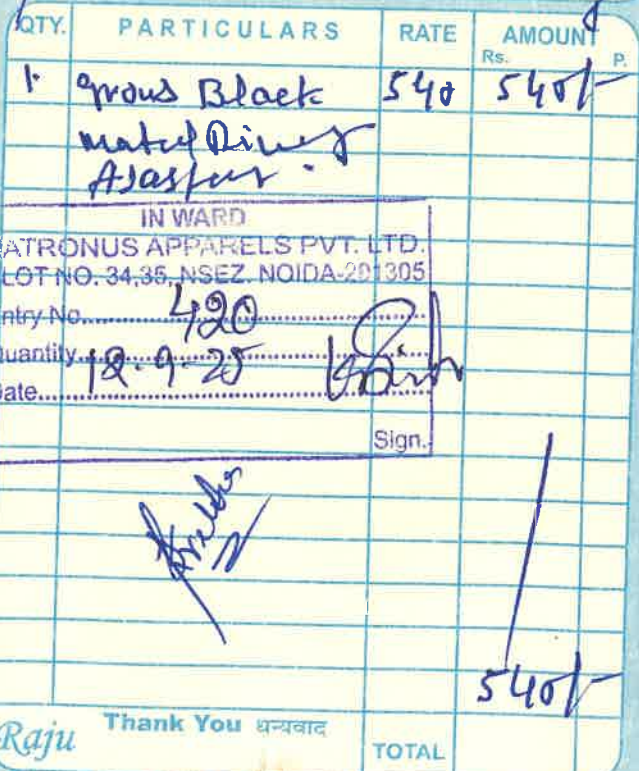 QTY. PARTICULARS RATE AMOUNT
Rs. P.
1. Black 540 540/-
IN WARD
ATRONUS APPARELS PVT. LTD.
LOT NO. 34,35, NSEZ. NOIDA-201305
ntry No. 420
uantity
ate 12.9.25
Sign.
540/-
Raju Thank You धन्यवाद
TOTAL